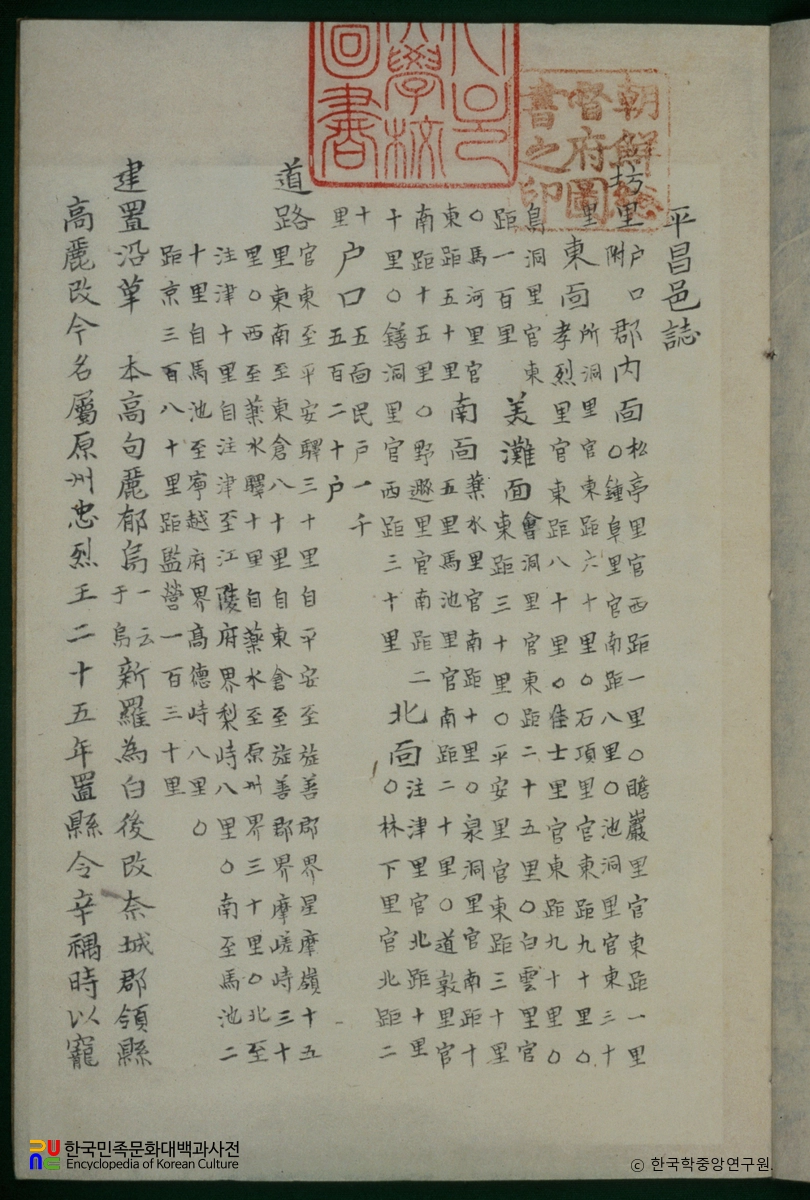 平昌邑誌
坊里 附戶口 郡內面 松亭里官西距一里○瞻巖里官東距一里
○鍾阜里官南距八里○池洞里官東三十
里 東面 所洞里官東距六十里○石項里官東距九十里○
孝烈里官東距八十里○佳士里官東距九十里○
鳥洞里官東
距一百里 美灘面 會洞里官東距二十五里○白雲里官
東距三十里○平安里官東距三十里
○馬河里官
東距五十里 南面 藥水里官南距十里○泉洞里官南距十
五里馬池里官南距二十里○道敦里官
南距十五里○野遯里官南距二
十里○鐥洞里官西距三十里 北面 注津里官北距十里
○林下里官北距二
十里 戶口 五面民戶一千
五百二十戶
道路 官東至平安驛三十里自平安至旌善郡界星摩嶺十五
里東南至東倉八十里自東倉至旌善郡界摩嵯峙三十
里○西至藥水驛十里自藥水至原州界三十里○北至
注津十里自注津至江陵府界梨峙八里○南至馬池二
十里自馬池至寧越府界高德峙八里○
距京三百八十里距監營一百三十里
建置沿革 本高句麗郁烏 一云于烏 新羅為白後改奈城郡領縣
高麗改今名屬原州忠烈王二十五年置縣令辛禑時以寵
朝鮮總督府圖書之印
學校
圖書
한국민족문화대백과사전
Encyclopedia of Korean Culture
© 한국학중앙연구원.